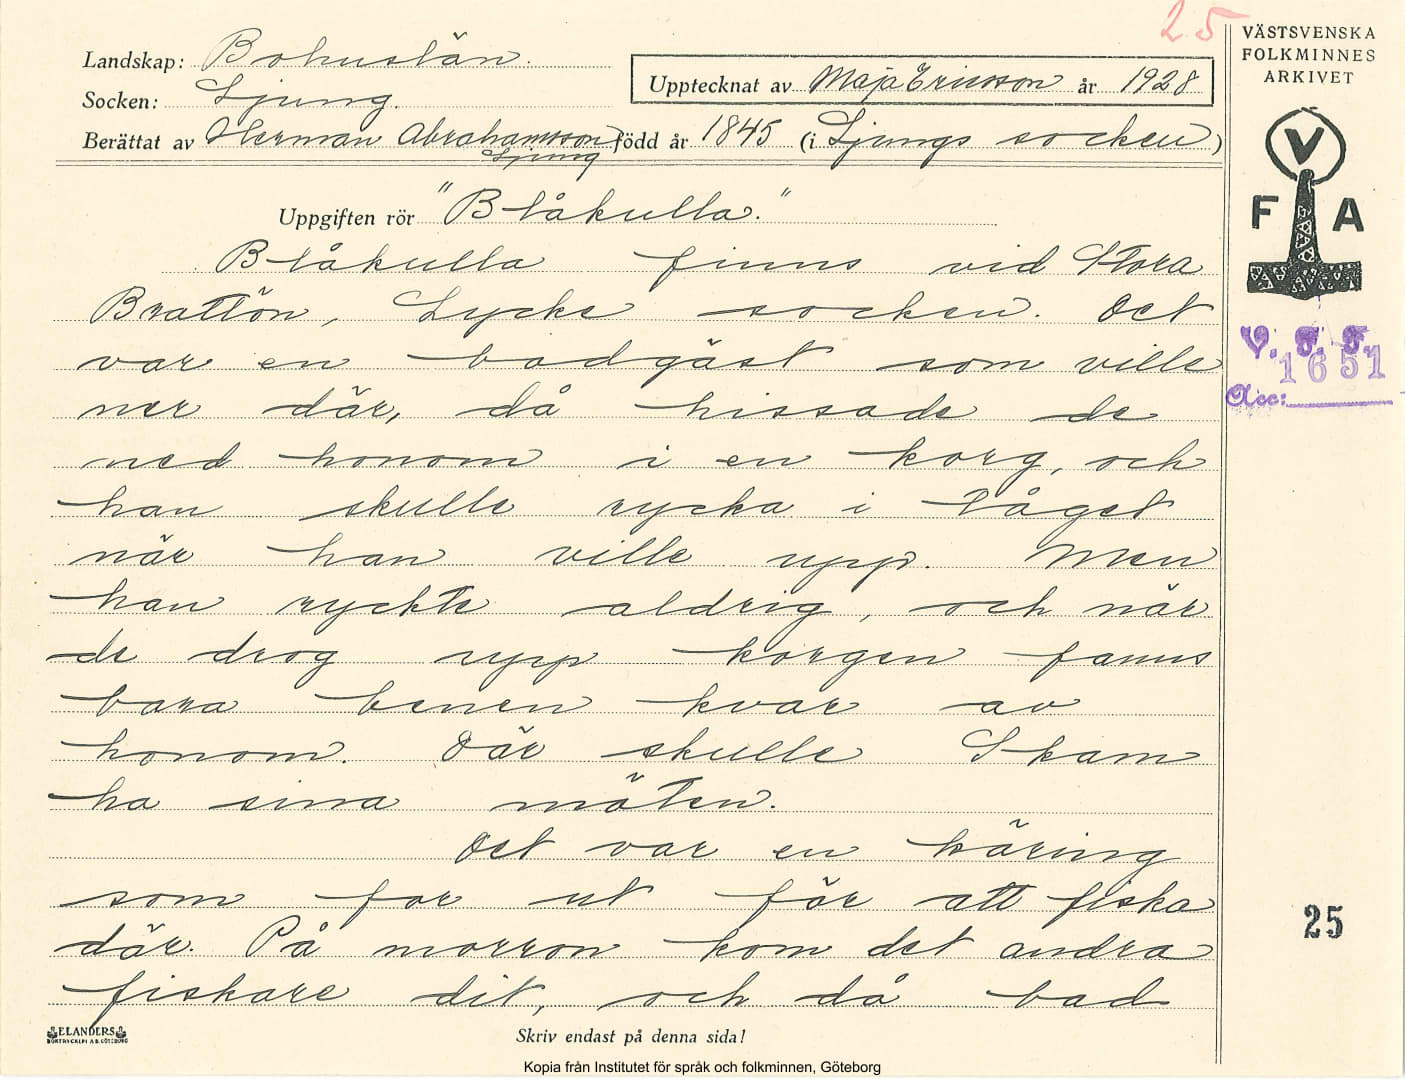 25
Landskap: Bohuslän.
Socken: Ljung.
Upptecknat av Maja Ericsson år 1928
Berättat av Herman Abrahamsson född år 1845 (i Ljungs socken)
Ljung
Uppgiften rör "Blåkulla."
Blåkulla finns vid Stora
Brattön, Lycke socken. Det
var en badgäst som ville
ner där, då hissade de
ned honom i en korg, och
han skulle rycka i tåget
när han ville upp. Men
han ryckte aldrig, och när
de drog upp korgen fanns
bara benen kvar av
honom. Där skulle Skam
ha sina möten.
Det var en käring
som for ut för att fiska
där. På morron kom det andra
fiskare dit, och då bad
ELANDERS
BOKTRYCKERI A.B. GÖTEBORG
Skriv endast på denna sida!
Kopia från Institutet för språk och folkminnen, Göteborg
VÄSTSVENSKA
FOLKMINNES
ARKIVET
V
F A
V. F. F.
1651
Acc:
25